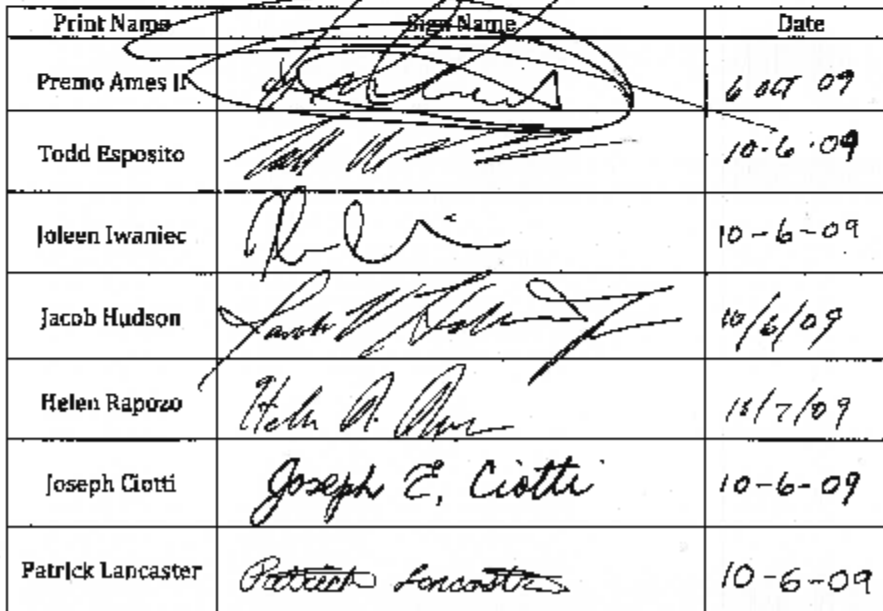 Print Name Sign Name Date
Premo Ames II 6 OCT 09
Todd Esposito 10.6.09
Joleen Iwaniec 10-6-09
Jacob Hudson 10/6/09
Helen Rapozo Helen R. 10/7/09
Joseph Ciotti Joseph E. Ciotti 10-6-09
Patrick Lancaster Patrick Lancaster 10-6-09